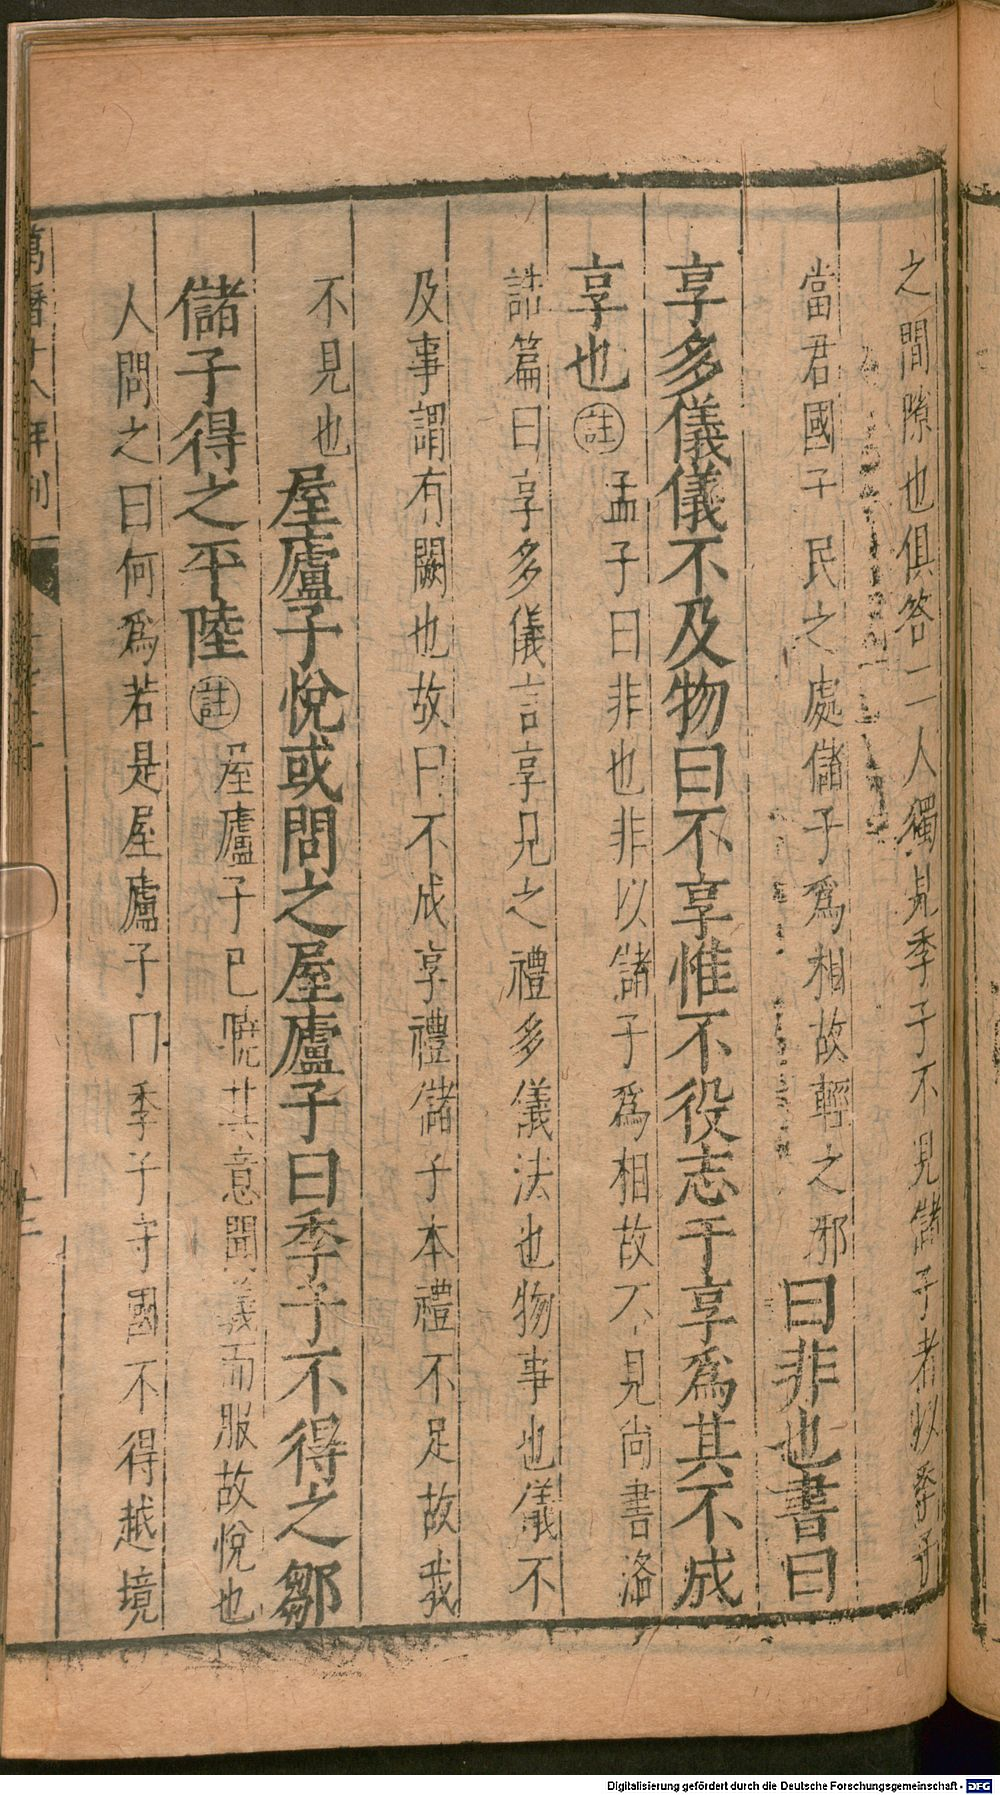 之間隙也俱答二人獨見季子不見儲子者以季子
當君國子民之處儲子爲相故輕之邪曰非也書曰
享多儀儀不及物曰不享惟不役志于享爲其不成
享也註孟子曰非也非以儲子爲相故不見尚書洛
誥篇曰享多儀言享見之禮多儀法也物事也儀不
及事謂有闕也故曰不成享禮儲子本禮不足故我
不見也屋廬子悅或問之屋廬子曰季子不得之鄒
儲子得之平陸註屋廬子已曉其意聞義而服故悅也
人問之曰何爲若是屋廬子曰季子守國不得越境
萬曆十八年刊
Digitalisierung gefördert durch die Deutsche Forschungsgemeinschaft - DFG